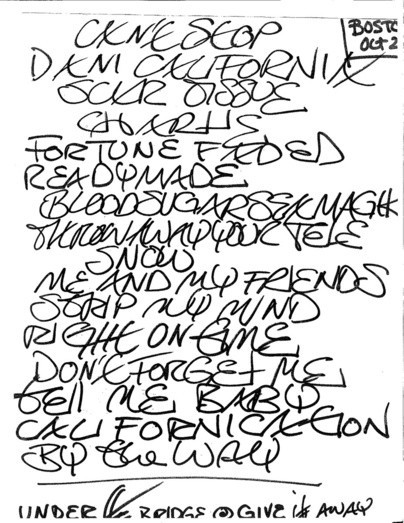 CAN'T STOP
BOSTO
OCT 2
DANI CALIFORNIA
SCAR TISSUE
CHARLIE
FORTUNE FADED
READYMADE
BLOODSUGARSEXMAGIK
THROW AWAY YOUR TELE
SNOW
ME AND MY FRIENDS
STRIP MY MIND
RIGHT ON TIME
DON'T FORGET ME
tell ME BABY
CALIFORNICATION
BY the WAY
UNDER BRIDGE GIVE it AWAY